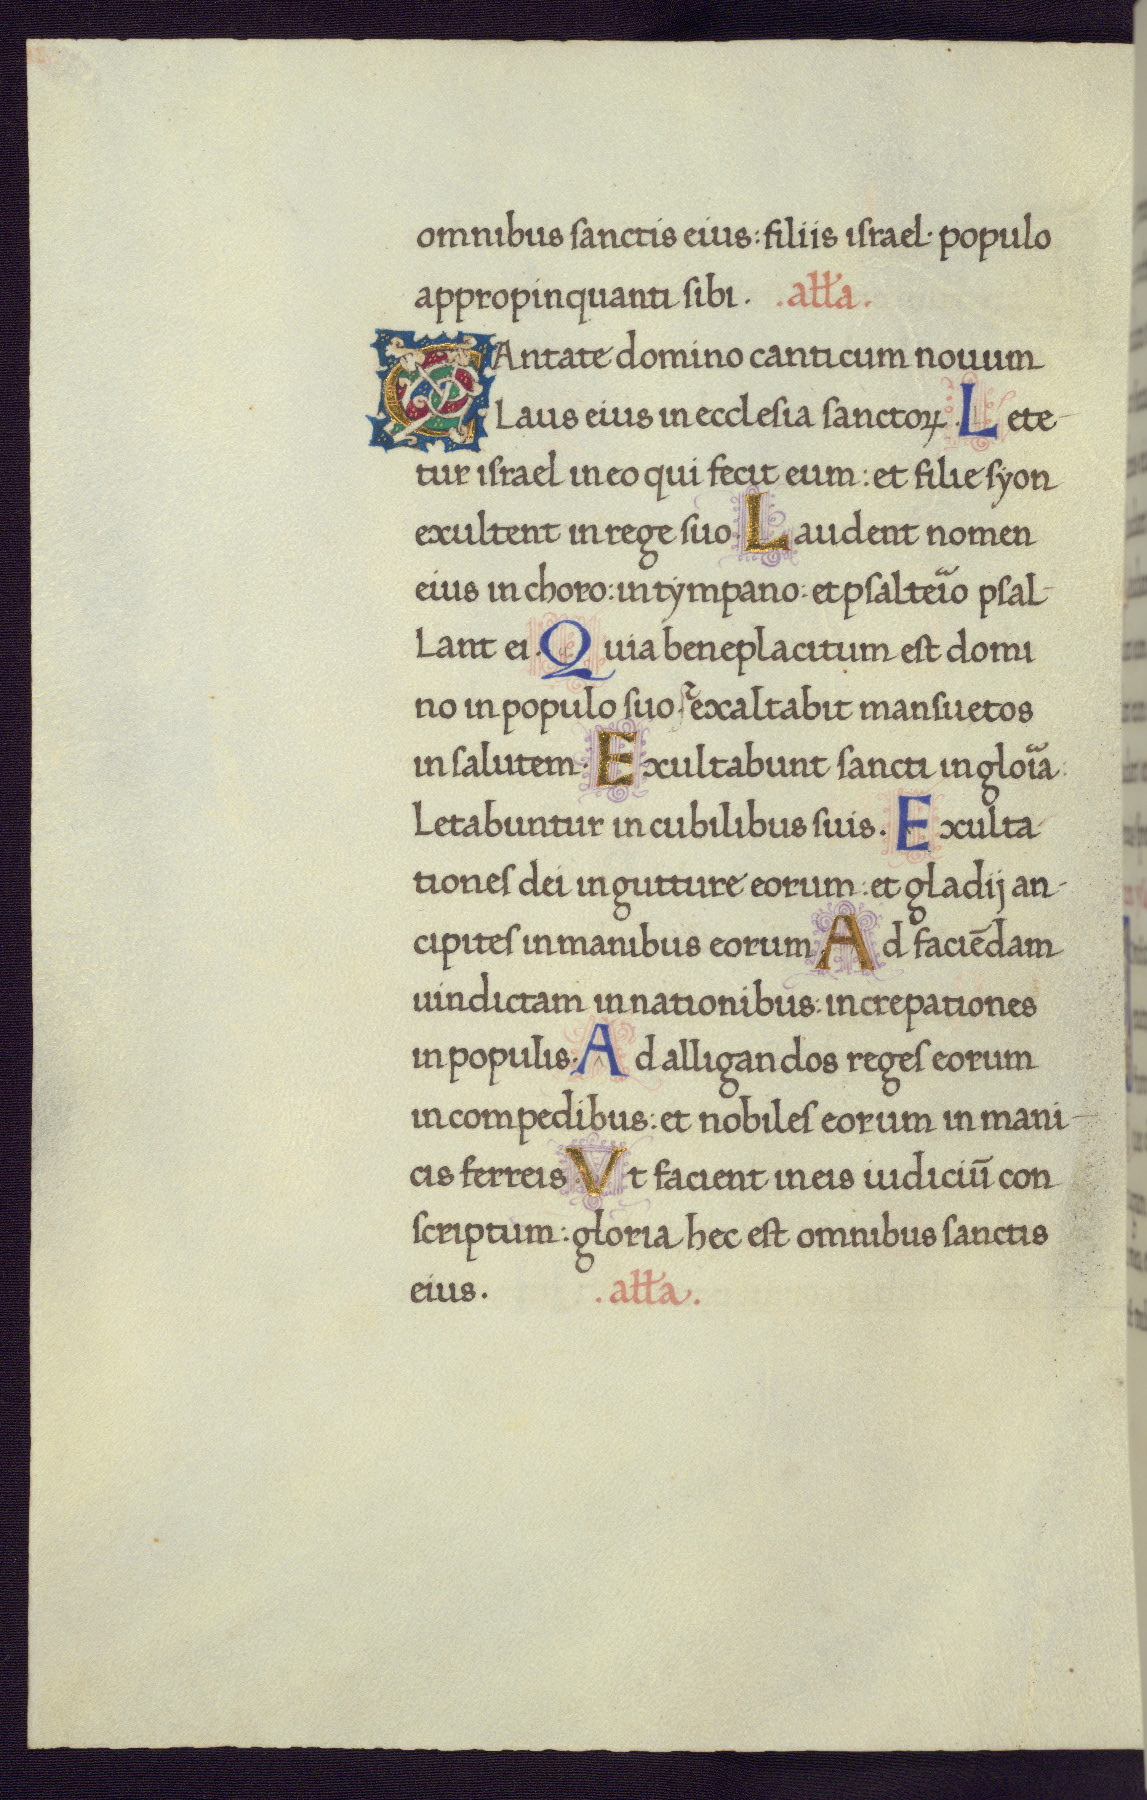 omnibus sanctis eius: filiis israel· populo
appropinquanti sibi. .alła.
CAntate domino canticum nouum
Laus eius in ecclesia sanctoꝝ. Lete-
tur israel in eo qui fecit eum: et filie syon
exultent in rege suo. Laudent nomen
eius in choro: in tympano: et psalteiͣo psal-
Lant ei. Quia beneplacitum est domi
no in populo suo: et exaltabit mansuetos
in salutem. Exultabunt sancti in gloiͣa:
Letabuntur in cubilibus suis. Exulta-
tiones dei in gutture eorum: et gladij an-
cipites in manibus eorum. Ad faciēdam
uindictam in nationibus: increpationes
in populis. Ad alligandos reges eorum
in compedibus: et nobiles eorum in mani-
cis ferreis. Vt facient in eis iudiciū con
scriptum: gloria hec est omnibus sanctis
eius. .alła.